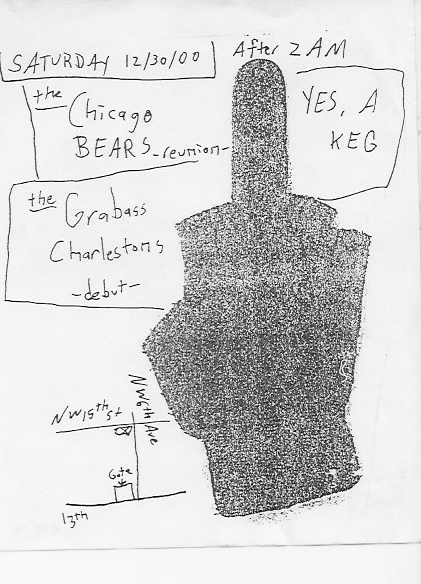 SATURDAY 12/30/00
After 2 AM
the Chicago
BEARS -reunion-
YES, A
KEG
the Grabass
Charlestons
-debut-
NW 15th St
NW 6th Ave
Gate
13th